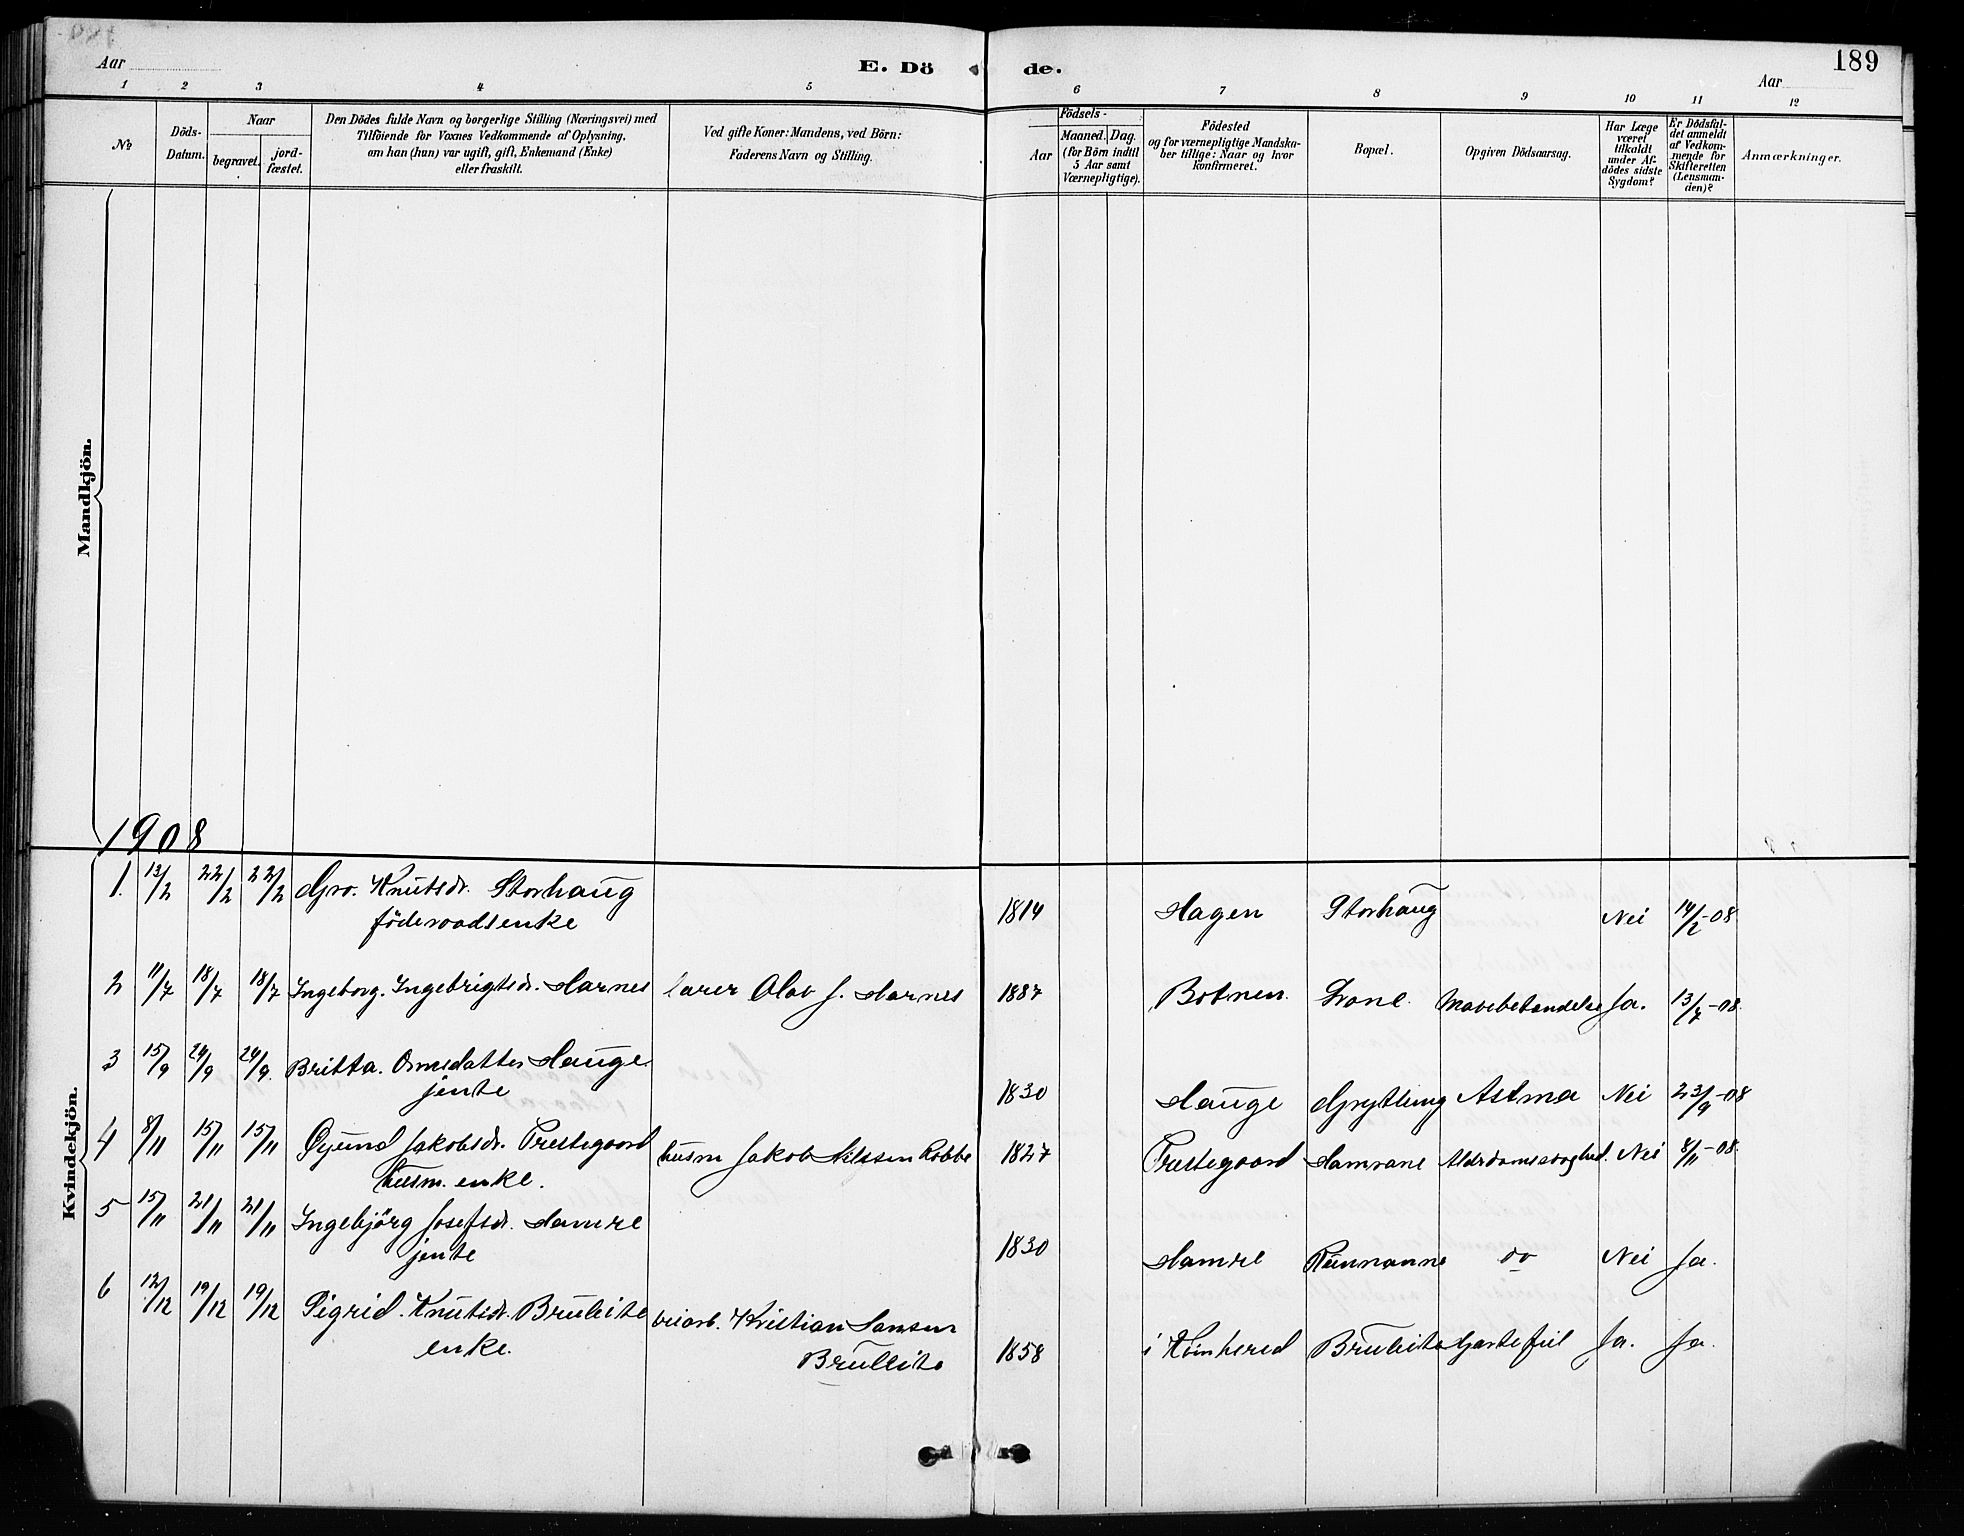 Aar
E. Dö de.
189
Aar
1 2 3 4 5 6 7 8 9 10 11 12
№
Döds-
Datum.
Naar
begravet.
jord-
fæstet.
Den Dödes fulde Navn og borgerlige Stilling (Næringsvei) med
Tilföiende for Voxnes Vedkommende af Oplysning,
om han (hun) var ugift, gift, Enkemand (Enke)
eller fraskilt.
Ved gifte Koner: Mandens, ved Börn:
Faderens Navn og Stilling.
Födsels-
Aar
Maaned. Dag.
(for Börn indtil
5 Aar samt
Værnepligtige).
Födested
og for værnepligtige Mandska-
ber tillige: Naar og hvor
konfirmeret.
Bopæl.
Opgiven Dödsaarsag.
Har Læge
været
tilkaldt
under Af-
dödes sidste
Sygdom?
Er Dödsfal-
det anmeldt
af Vedkom-
mende for
Skifteretten
(Lensman-
den)?
Anmærkninger.
Mandkjön.
1908
Kvindekjön.
1. 13/2 22/2 22/2 Gro. Knutsdr. Storhaug 1814 Hagen Storhaug Nei 14/2-08
föderaadsenke
2 11/7 18/7 18/7 Ingeborg. Ingebrigtsdr. Harnes lærer Olav J. Harnes 1887 Botnen. Mavebetændelse Ja. 13/7-08.
3 15/9 24/9 24/9. Britta. Hauge 1830 Hauge Grytling Astma Nei 23/9-08
jente
4 8/11 15/11 15/11 Øyund Jakobsdr. Prestegaard husm Jakob Nilssen Kobbe 1827 Prestegaard Hamrane Nei 8/11-08.
husm. enke.
5 15/11 21/11 21/11 Ingebjörg Josefsdr. Hamre 1830 Hamre do Nei Ja.
jente
6 12/12 19/12 19/12 Sigrid. Knutsdr. Brulleite Kristian Hansen 1858 i Kvinherred Brulleite Hjertefeil Ja. Ja.
enke. Brulleite